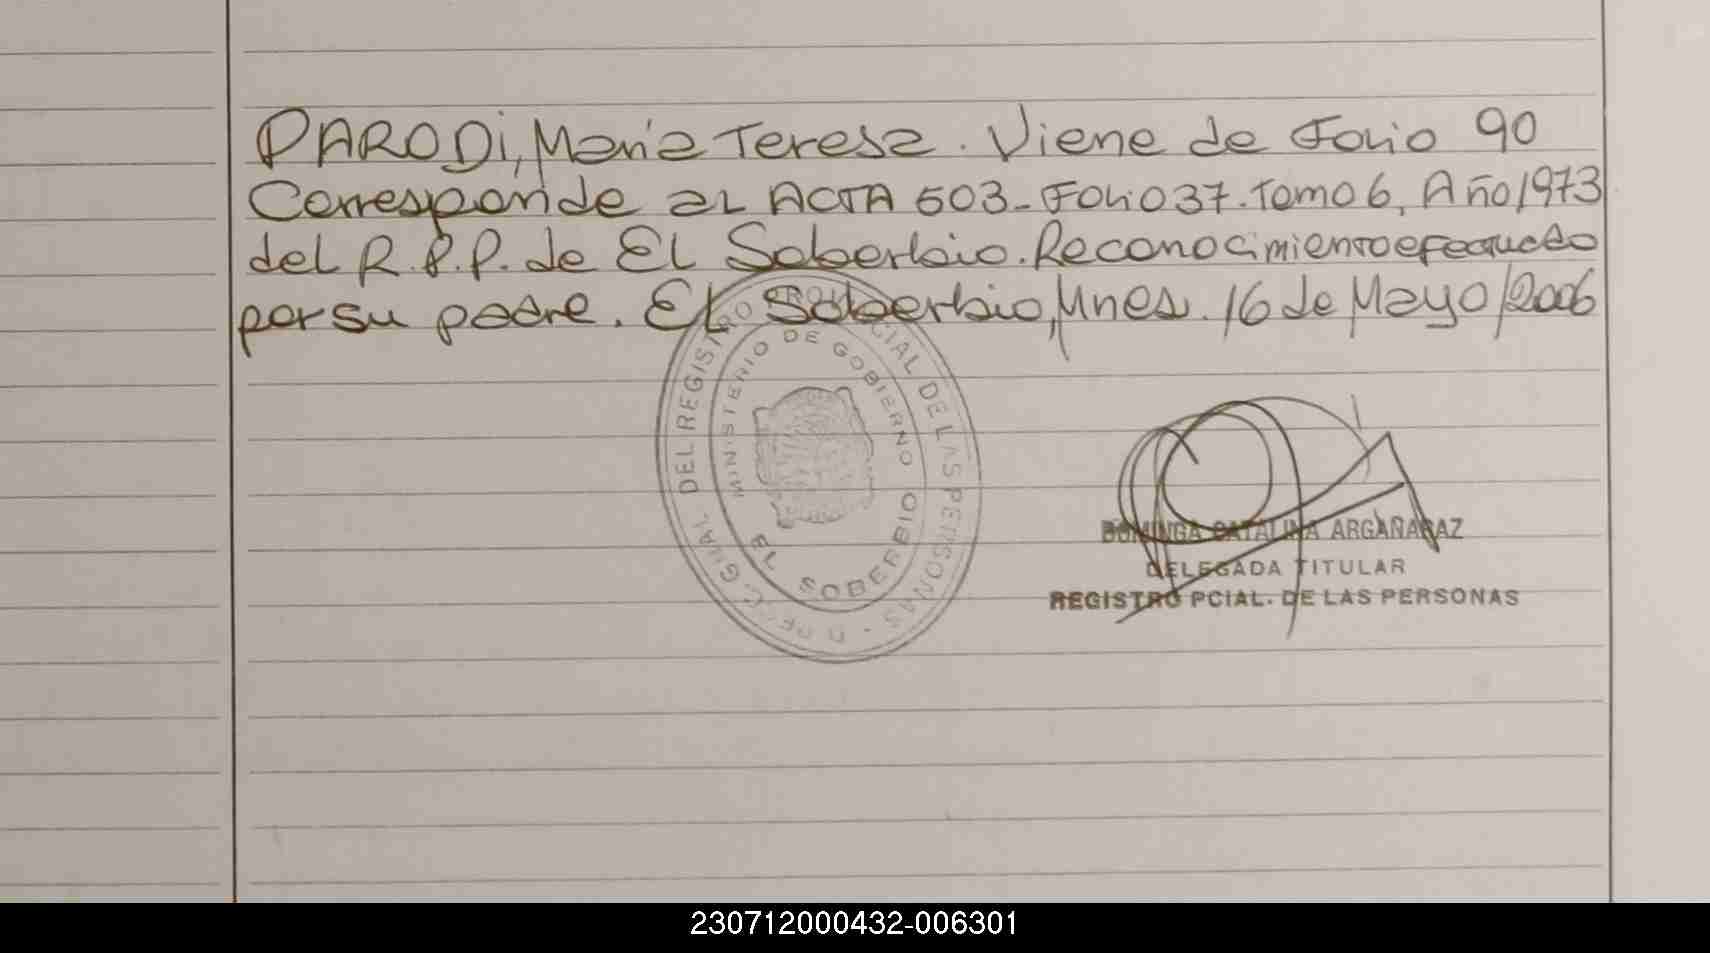 PARODi, María Teresa. Viene de Folio 90
Corresponde al ACTA 503- Folio 37. Tomo 6, Año 1973
del R.P.P. de El Soberbio. Reconocimiento efectuado
por su padre. El Soberbio, Mnes. 16 de Mayo/2006
DEL REGISTRO PROVINCIAL DE LAS PERSONAS
MINISTERIO DE GOBIERNO
EL SOBERBIO
DOMINGA CATALINA ARGAÑARAZ
DELEGADA TITULAR
REGISTRO PCIAL. DE LAS PERSONAS
230712000432-006301